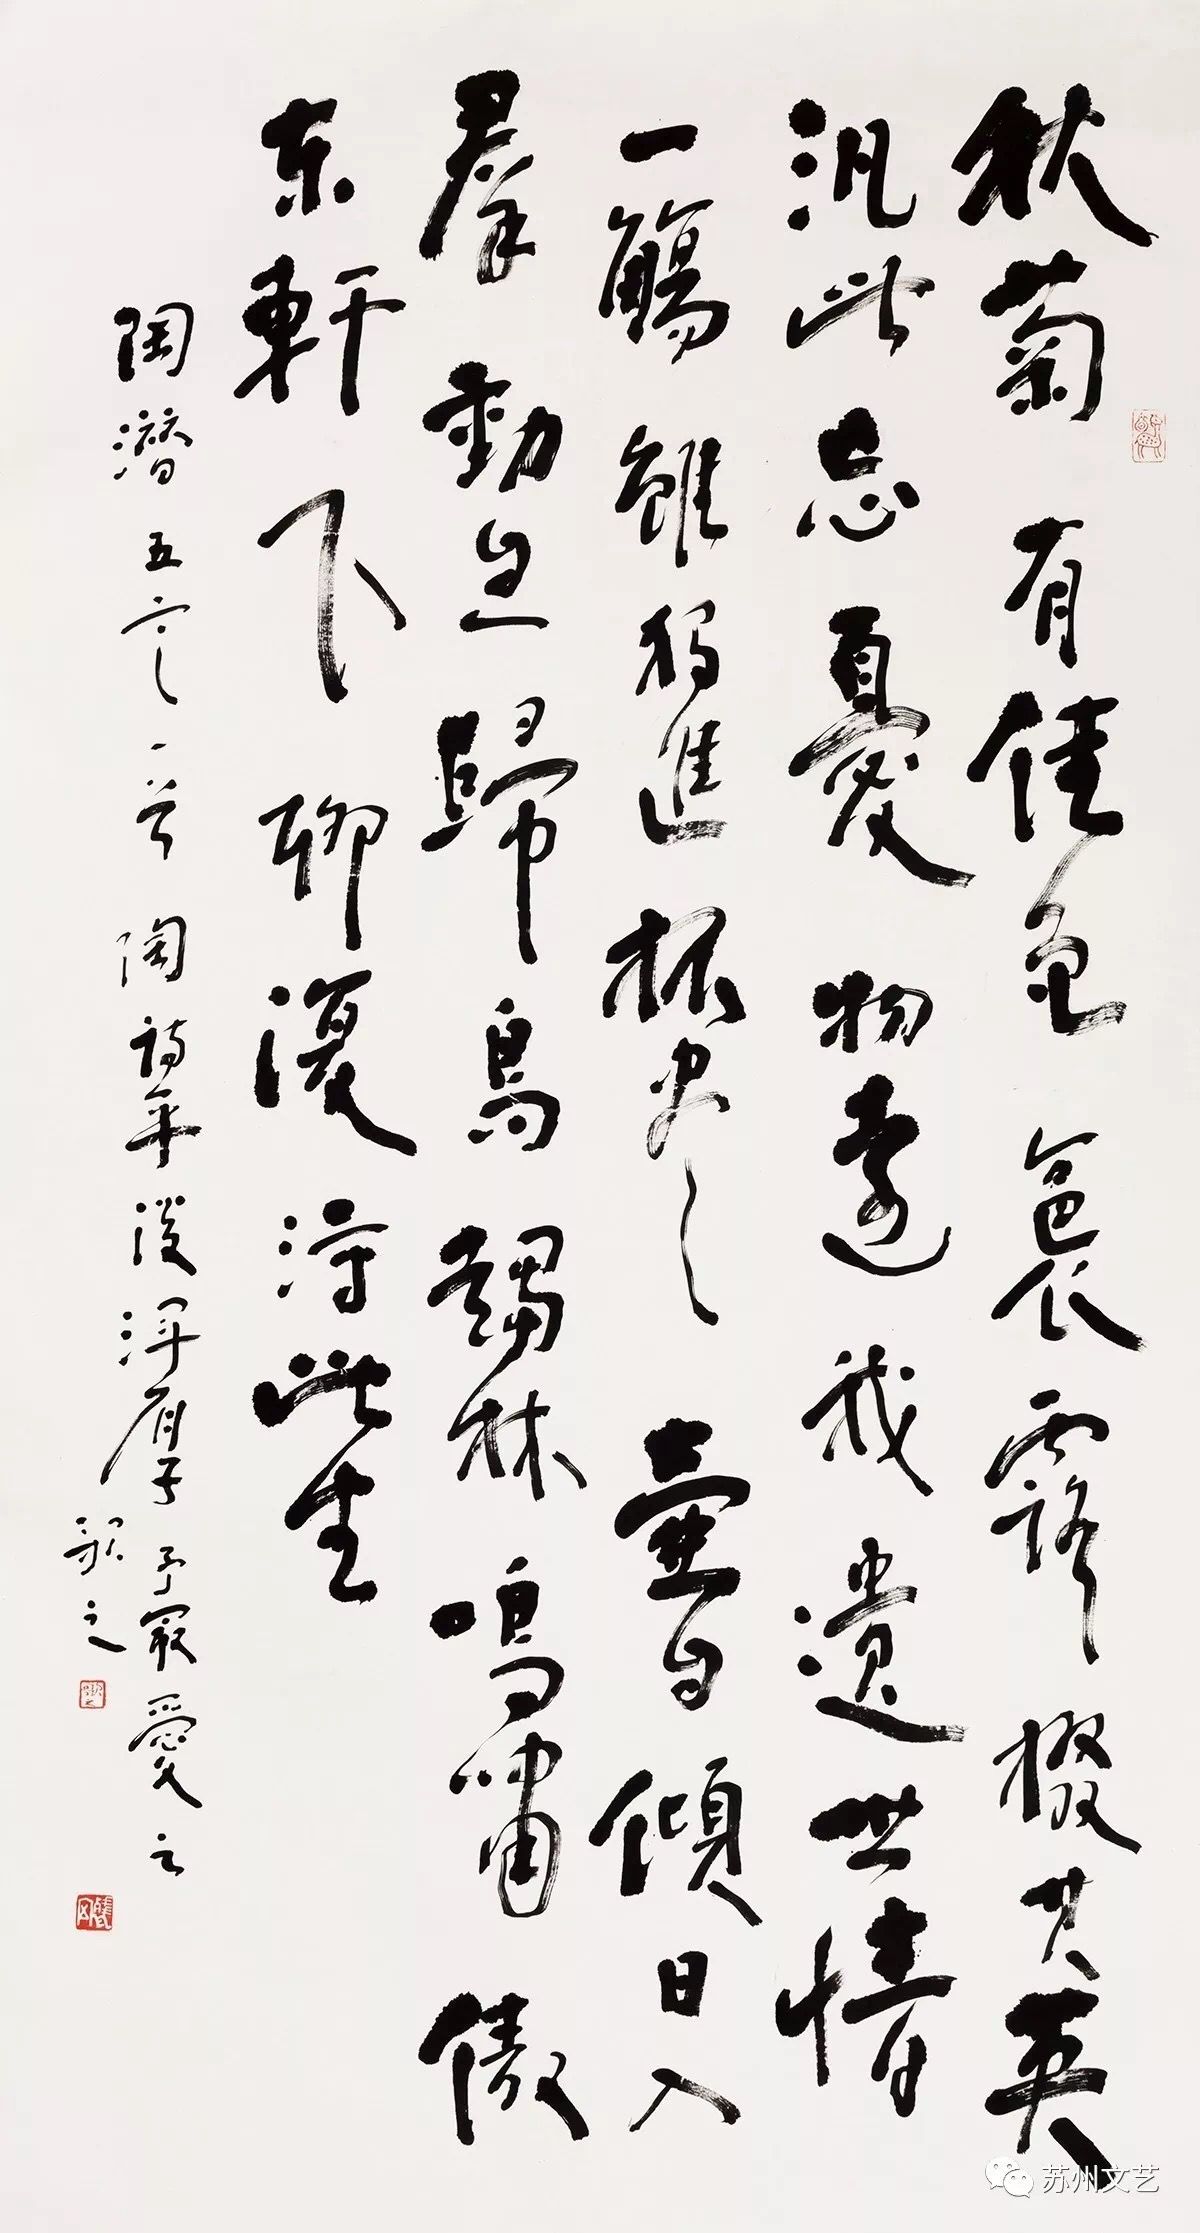 秋菊有佳色裛露掇其英
汎此忘憂物遠我遺世情
一觴雖獨進杯盡壺自傾日入
羣動息歸鳥趨林鳴嘯傲
東軒下聊復得此生
陶潛五言一首陶詩平淡渾厚予最愛之
歌之
苏州文艺